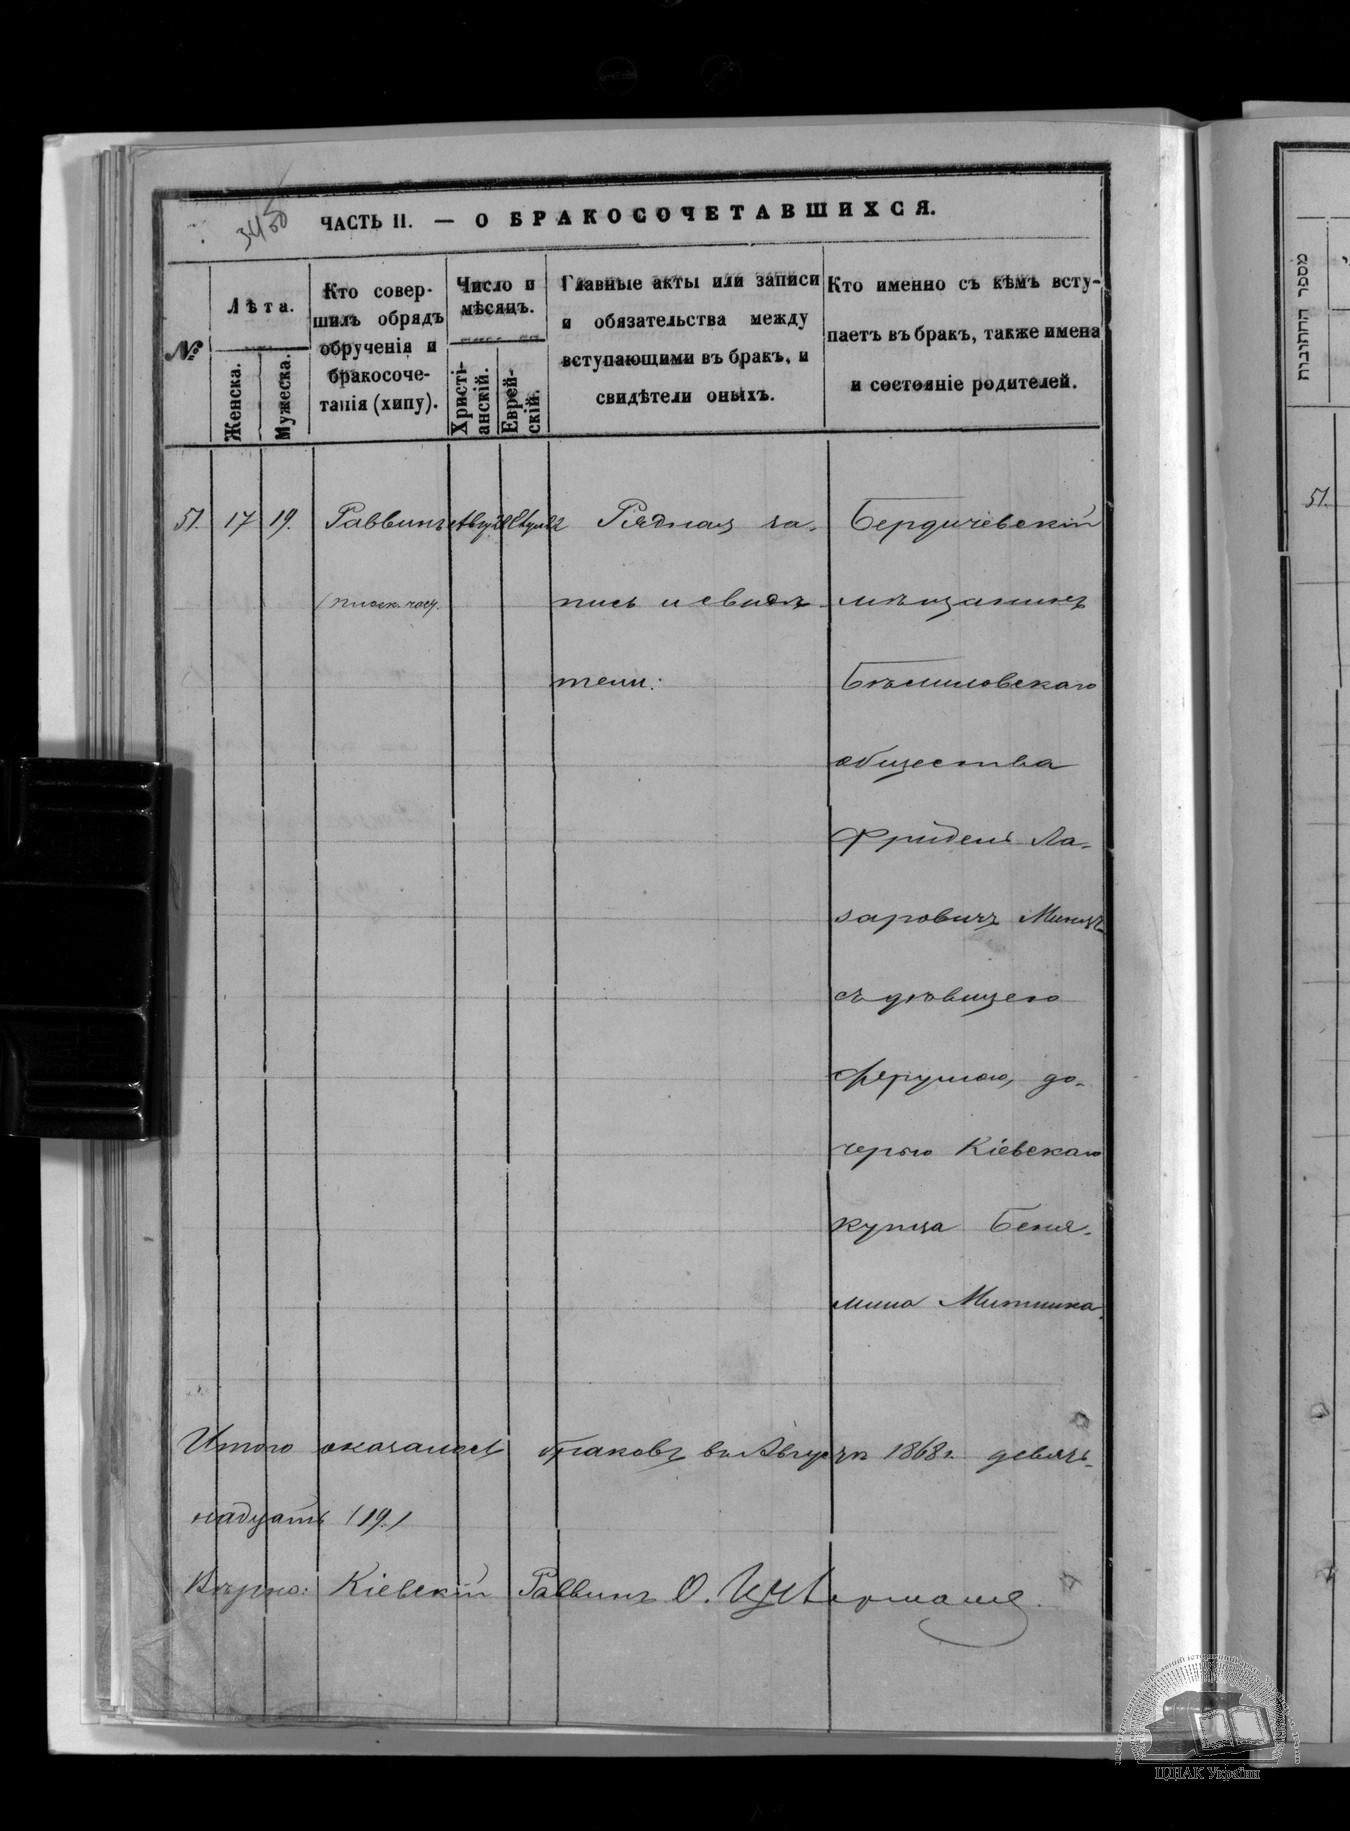 ЧАСТЬ II. — О БРАКОСОЧЕТАВШИХСЯ.
№
Лѣта.
Женска.
Мужеска.
Кто совер-
шилъ обрядъ
обрученія и
бракосоче-
танія (хипу).
Число и
мѣсяцъ.
Христі-
анскій.
Еврей-
скій.
Главные акты или записи
и обязательства между
вступающими въ бракъ, и
свидѣтели оныхъ.
Кто именно съ кѣмъ всту-
паетъ въ бракъ, также имена
и состояніе родителей.
51. 17 19. Раввинъ Рядная за- Бердичевскій
пись и свидѣ- мѣщанинъ
тели: Бѣлиловскаго
общества
Фридель Ла-
заровичъ
съ дѣвицею
Фрумою, до-
черью Кіевскаго
купца Беня-
мина Митника.
Итого оказалось браковъ въ Августѣ 1868 г. девят-
надцать (19.)
Вѣрно: Кіевскій Раввинъ О. Цукерманъ.
מספר החתונות
51.
ЦДІАК України